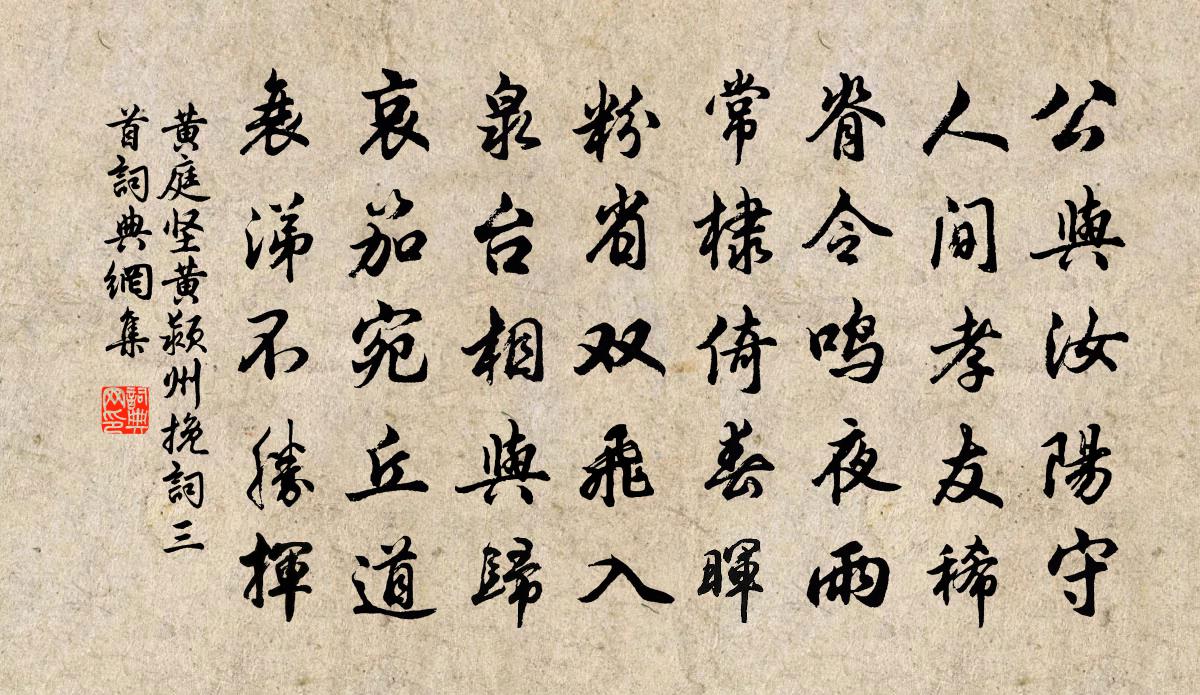 公與汝陽守
人間孝友稀
脊令鳴夜雨
常棣倚春暉
粉省双飛入
泉台相與歸
哀笳宛丘道
衰涕不勝揮
黄庭坚黄颍州挽詞三
首詞典網集
詞典
网印